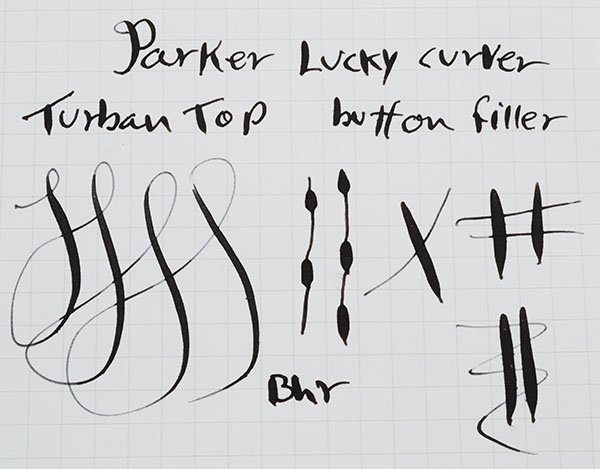 Parker Lucky curver
Turban Top button filler
Bhr